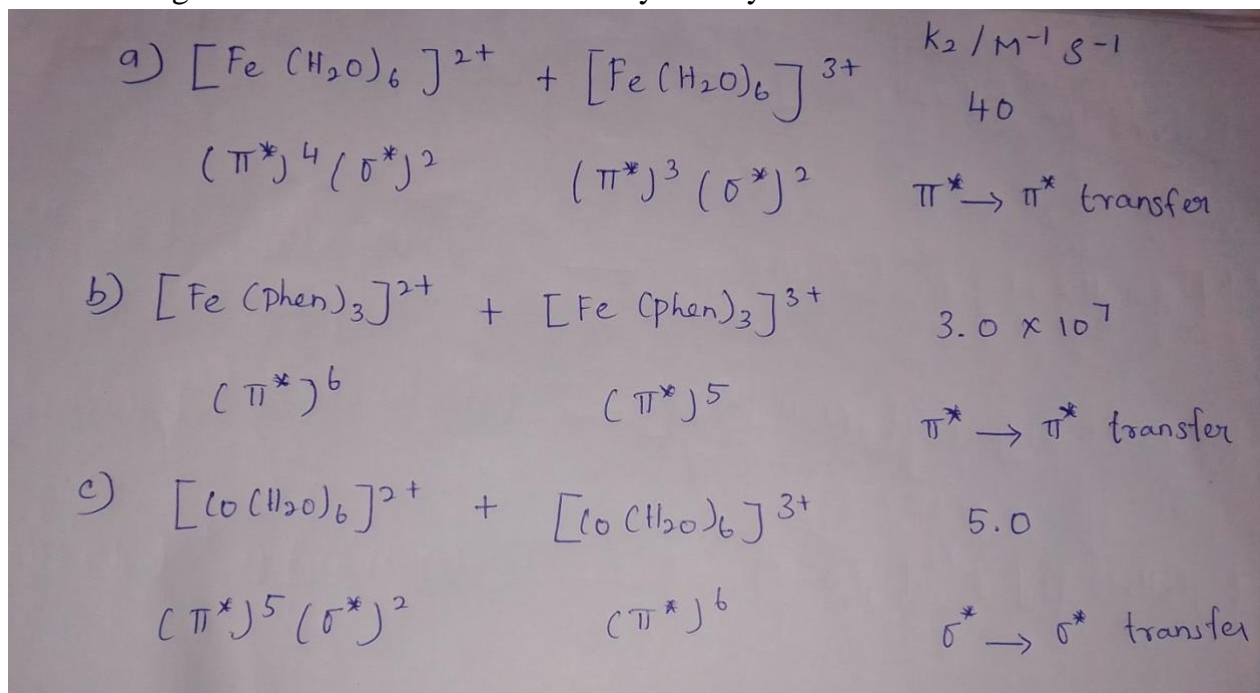 k2 / M-1 s-1
a) [Fe (H2O)6]2+ + [Fe (H2O)6]3+ 40
(π*)4 (σ*)2 (π*)3 (σ*)2 π* → π* transfer
b) [Fe (phen)3]2+ + [Fe (phen)3]3+ 3.0 x 10^7
(π*)6 (π*)5 π* → π* transfer
c) [Co (H2O)6]2+ + [Co (H2O)6]3+ 5.0
(π*)5 (σ*)2 (π*)6 σ* → σ* transfer